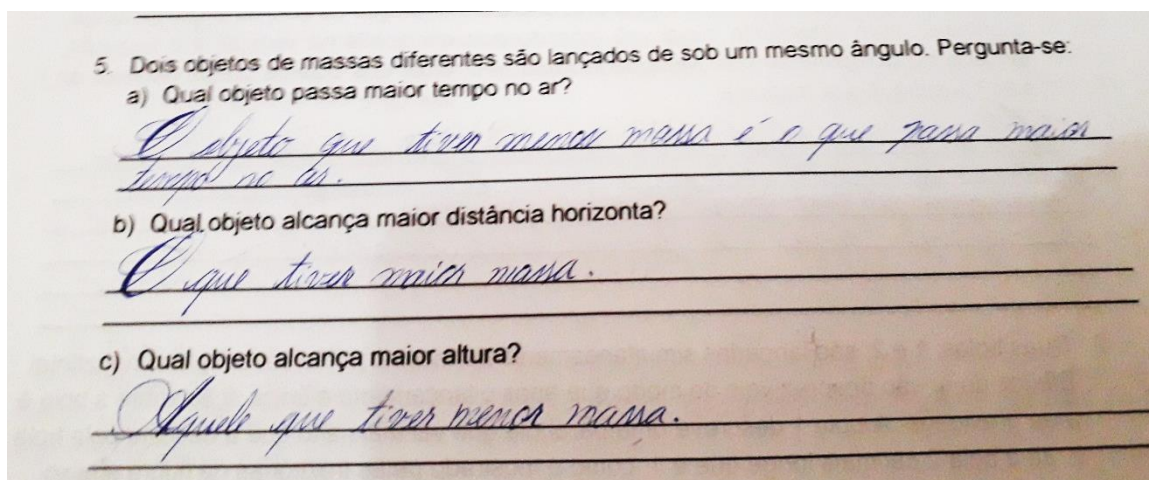 5. Dois objetos de massas diferentes são lançados de sob um mesmo ângulo. Pergunta-se:
a) Qual objeto passa maior tempo no ar?
O objeto que tiver menor massa é o que passa maior
tempo no ar.
b) Qual objeto alcança maior distância horizonta?
O que tiver maior massa.
c) Qual objeto alcança maior altura?
Aquele que tiver menor massa.